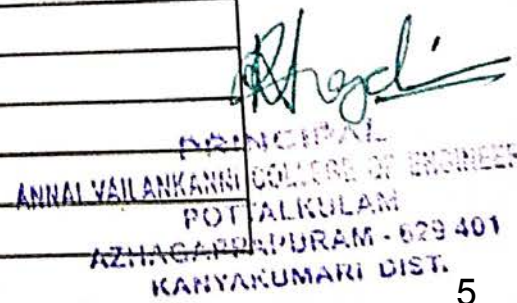 PRINCIPAL
ANNAI VAILANKANNI COLLEGE OF ENGINEER
POTTALKULAM
AZHAGAPPAPURAM - 629 401
KANYAKUMARI DIST.
5